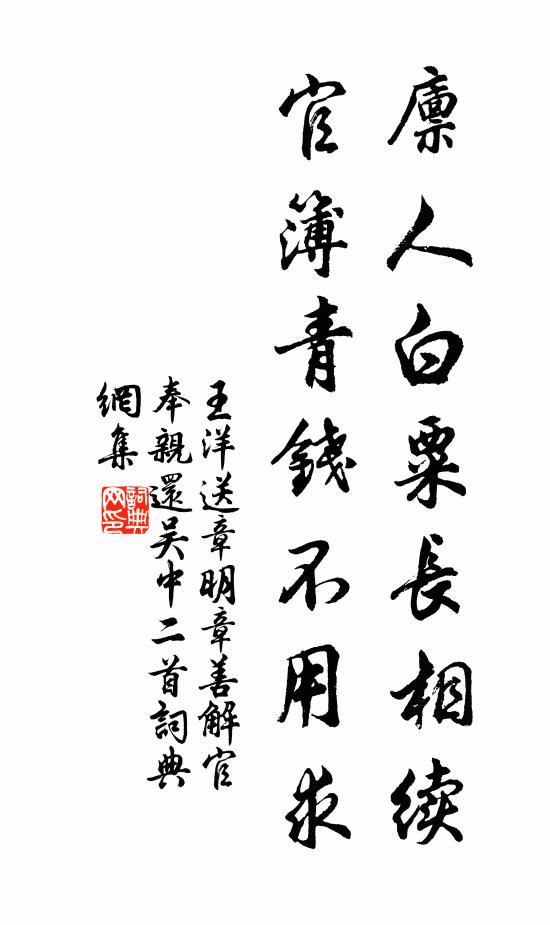 廪人白粟長相續
官簿青錢不用求
王洋送章明章善解官
奉親還吴中二首詞典
網集
詞典網印